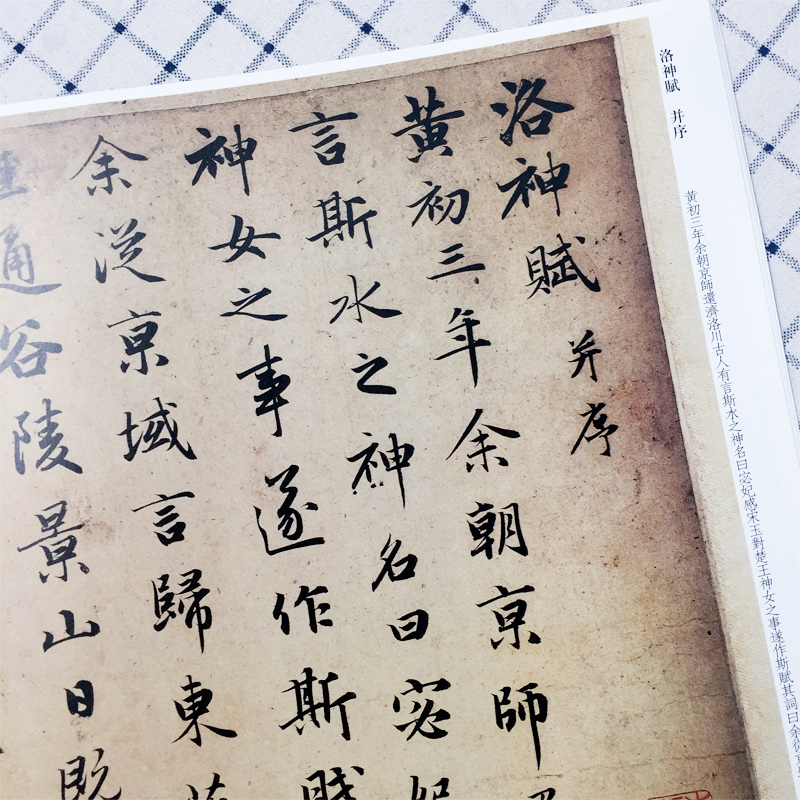 洛神賦 并序
黃初三年余朝京師還濟洛川古人有言斯水之神名曰宓妃感宋玉對楚王神女之事遂作斯賦其詞曰余從
洛神賦 并序
黃初三年余朝京師
言斯水之神名曰宓妃
神女之事遂作斯賦
余從京域言歸東
通谷陵景山日既